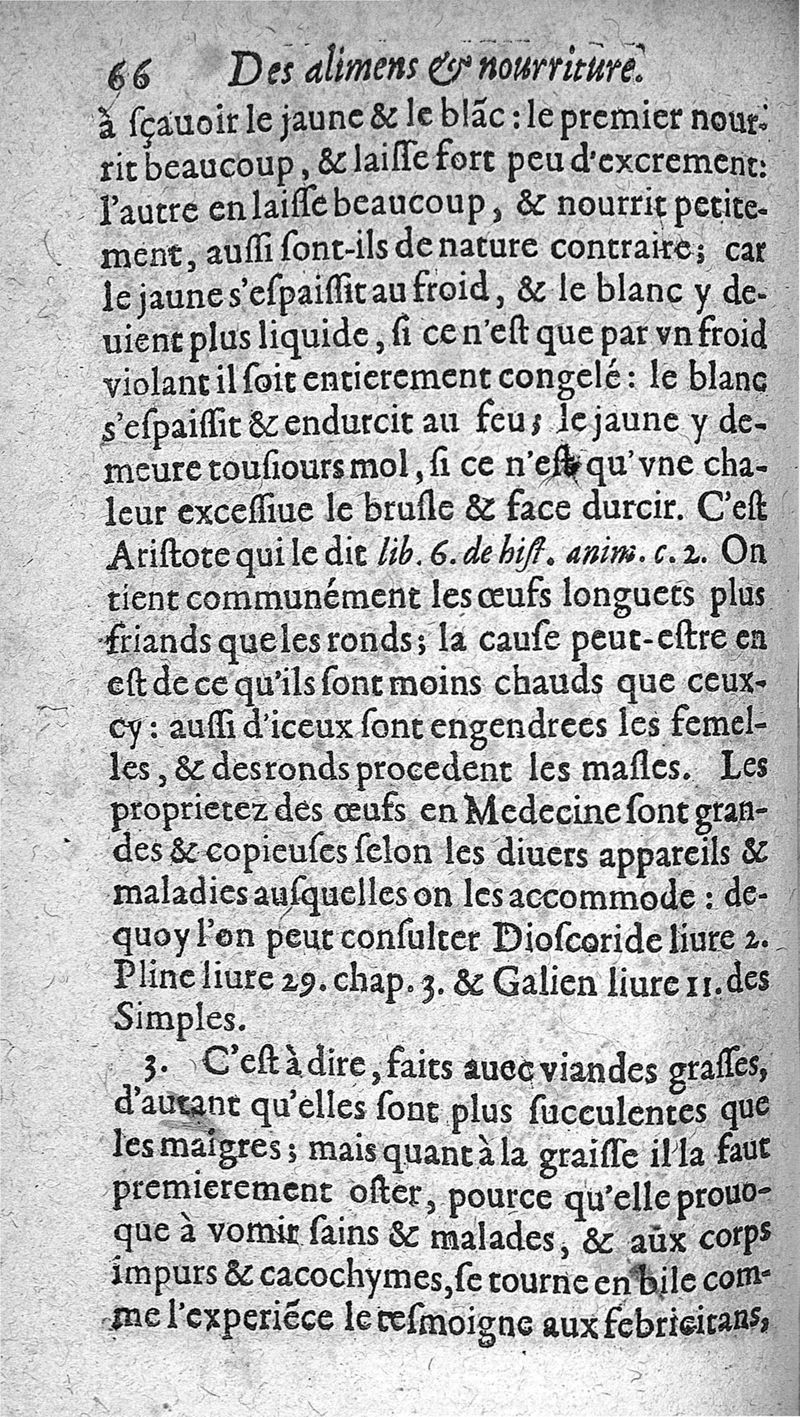 66 Des alimens & nourriture.
à sçauoir le jaune & le blãc : le premier nour-
rit beaucoup, & laisse fort peu d'excrement:
l'autre en laisse beaucoup, & nourrit petite-
ment, aussi sont-ils de nature contraire; car
le jaune s'espaissit au froid, & le blanc y de-
uient plus liquide, si ce n'est que par vn froid
violant il soit entierement congelé: le blanc
s'espaissit & endurcit au feu; le jaune y de-
meure tousiours mol, si ce n'est qu'vne cha-
leur excessiue le brusle & face durcir. C'est
Aristote qui le dit lib. 6. de hist. anim. c. 2. On
tient communément les œufs longuets plus
friands que les ronds; la cause peut-estre en
est de ce qu'ils sont moins chauds que ceux-
cy: aussi d'iceux sont engendrees les femel-
les, & des ronds procedent les masles. Les
proprietez des œufs en Medecine sont gran-
des & copieuses selon les diuers appareils &
maladies ausquelles on les accommode : de-
quoy l'on peut consulter Dioscoride liure 2.
Pline liure 29. chap. 3. & Galien liure 11. des
Simples.
3. C'est à dire, faits auec viandes grasses,
d'autant qu'elles sont plus succulentes que
les maigres; mais quant à la graisse il la faut
premierement oster, pource qu'elle prouo-
que à vomir sains & malades, & aux corps
impurs & cacochymes, se tourne en bile com-
me l'experiẽce le tesmoigne aux febricitans,